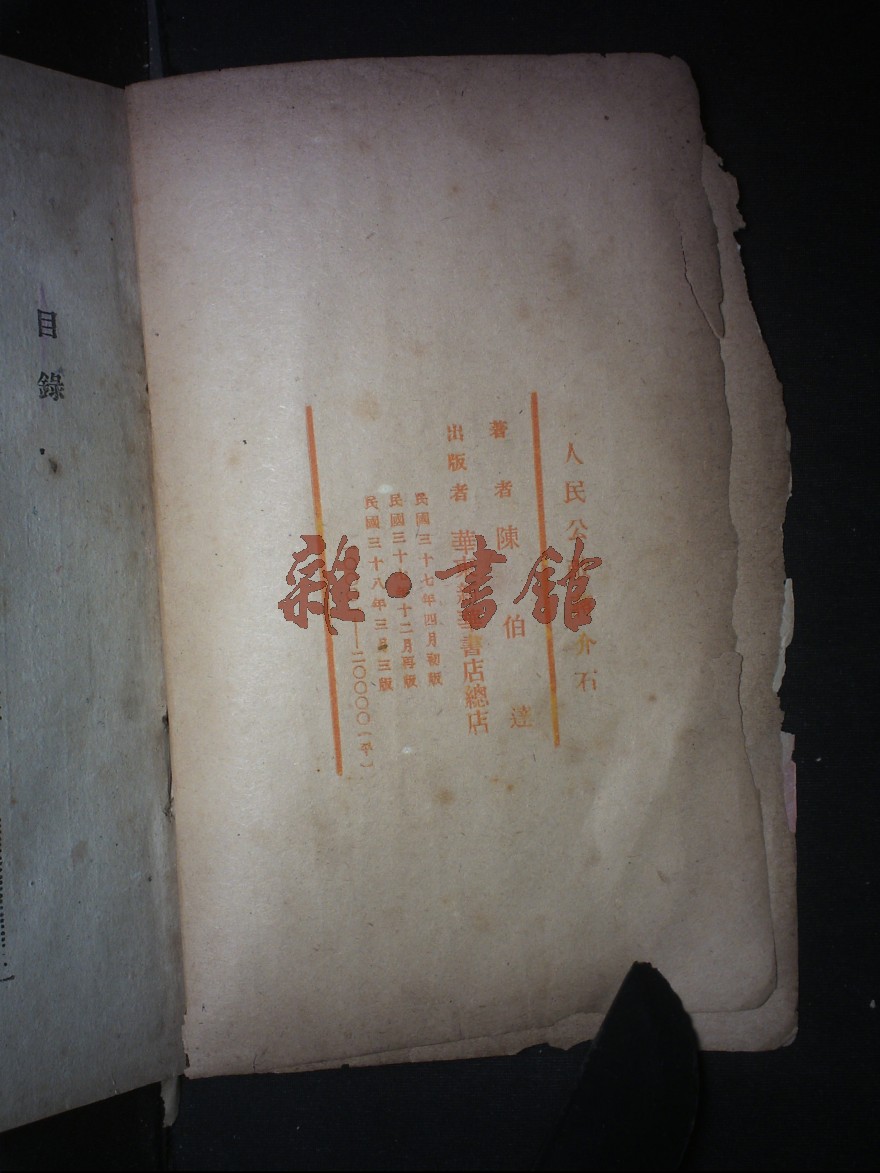 人民公 介石
著者 陳伯達
出版者 華 書店總店
民國三十七年四月初版
民國三十 十二月再版
民國三十八年三月三版
—二〇〇〇〇(平)
目錄
雜·書館